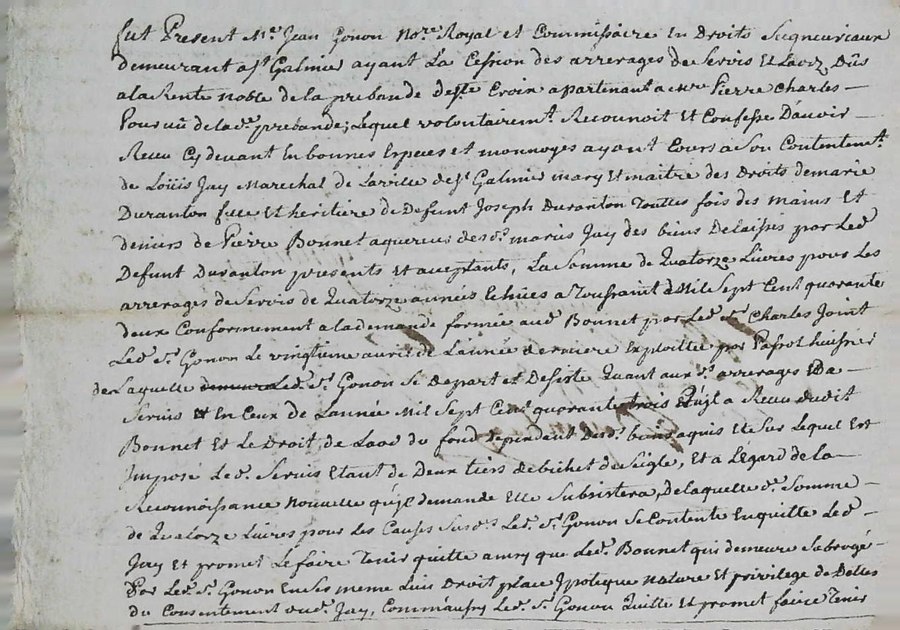 fut Present Me. Jean Gonon Nore. Royal et Commissaire En Droits Seigneuriaux
demeurant a st Galmier ayant La Cession des arrerages de Servis Et Laodz Dûs
a la Rente Noble de la prebande de ste Croix apartenant a mre Pierre Charles –
Pourvû de lad. prebande; Lequel volontairemt. Reconnoit Et Confesse D'avoir –
Receu Cy devant En bonnes Especes et monnoyes ayant Cours a Son Contentemt.
de Loüis Jay Marechal de Laville de st Galmier mary Et maitre des Droits de marie
Duranton fille Et heritiere de Defunt Joseph Duranton Touttes fois des mains Et
deniers de Pierre Bonnet aquereur desd. mariés Jay des biens Delaissés par Led.
Defunt Duranton presents Et aceptants, La Somme de Quatorze Livres pour Les
arrerages de Servis de Quatorze années Echües a Toussaint Mil Sept Cent quarante
deux Conformement a la demande formée aud. Bonnet par Led. sr. Charles Joint
Led. sr. Gonon Le vingtieme avril de L'année derniere Exploittée par huissier
de Laquelle Led. sr. Gonon Se Depart et Desiste Quant aux d. arrerages De –
Servis Et En Ceux de L'année Mil Sept Cent quarante trois Qu'jl a Receu dudit
Bonnet Et Le Droit de Laod du fond dependent desd. biens aquis Et Sur Lequel Est
Jmposé Led. Servis Etant de Deux tiers de bichet de Seigle, Et a L'égard de la –
Reconnoissance Nouvelle qu'jl demande Elle Subsistera, De laquelle d. Somme –
de Quatorze Livres pour Les Causes Susd. Led. sr. Gonon Se Contente En quitte Led –
Jay Et promet Le faire Tenir quitte ainsy que Led. Bonnet qui demeure Subrogé –
Par Led. sr. Gonon En Ses meme Lieu Droit place Jpoteque nature Et privilege de Dettes
du Consentement dud. Jay, Comm'aussy Led. sr. Gonon Quitte Et promet faire Tenir